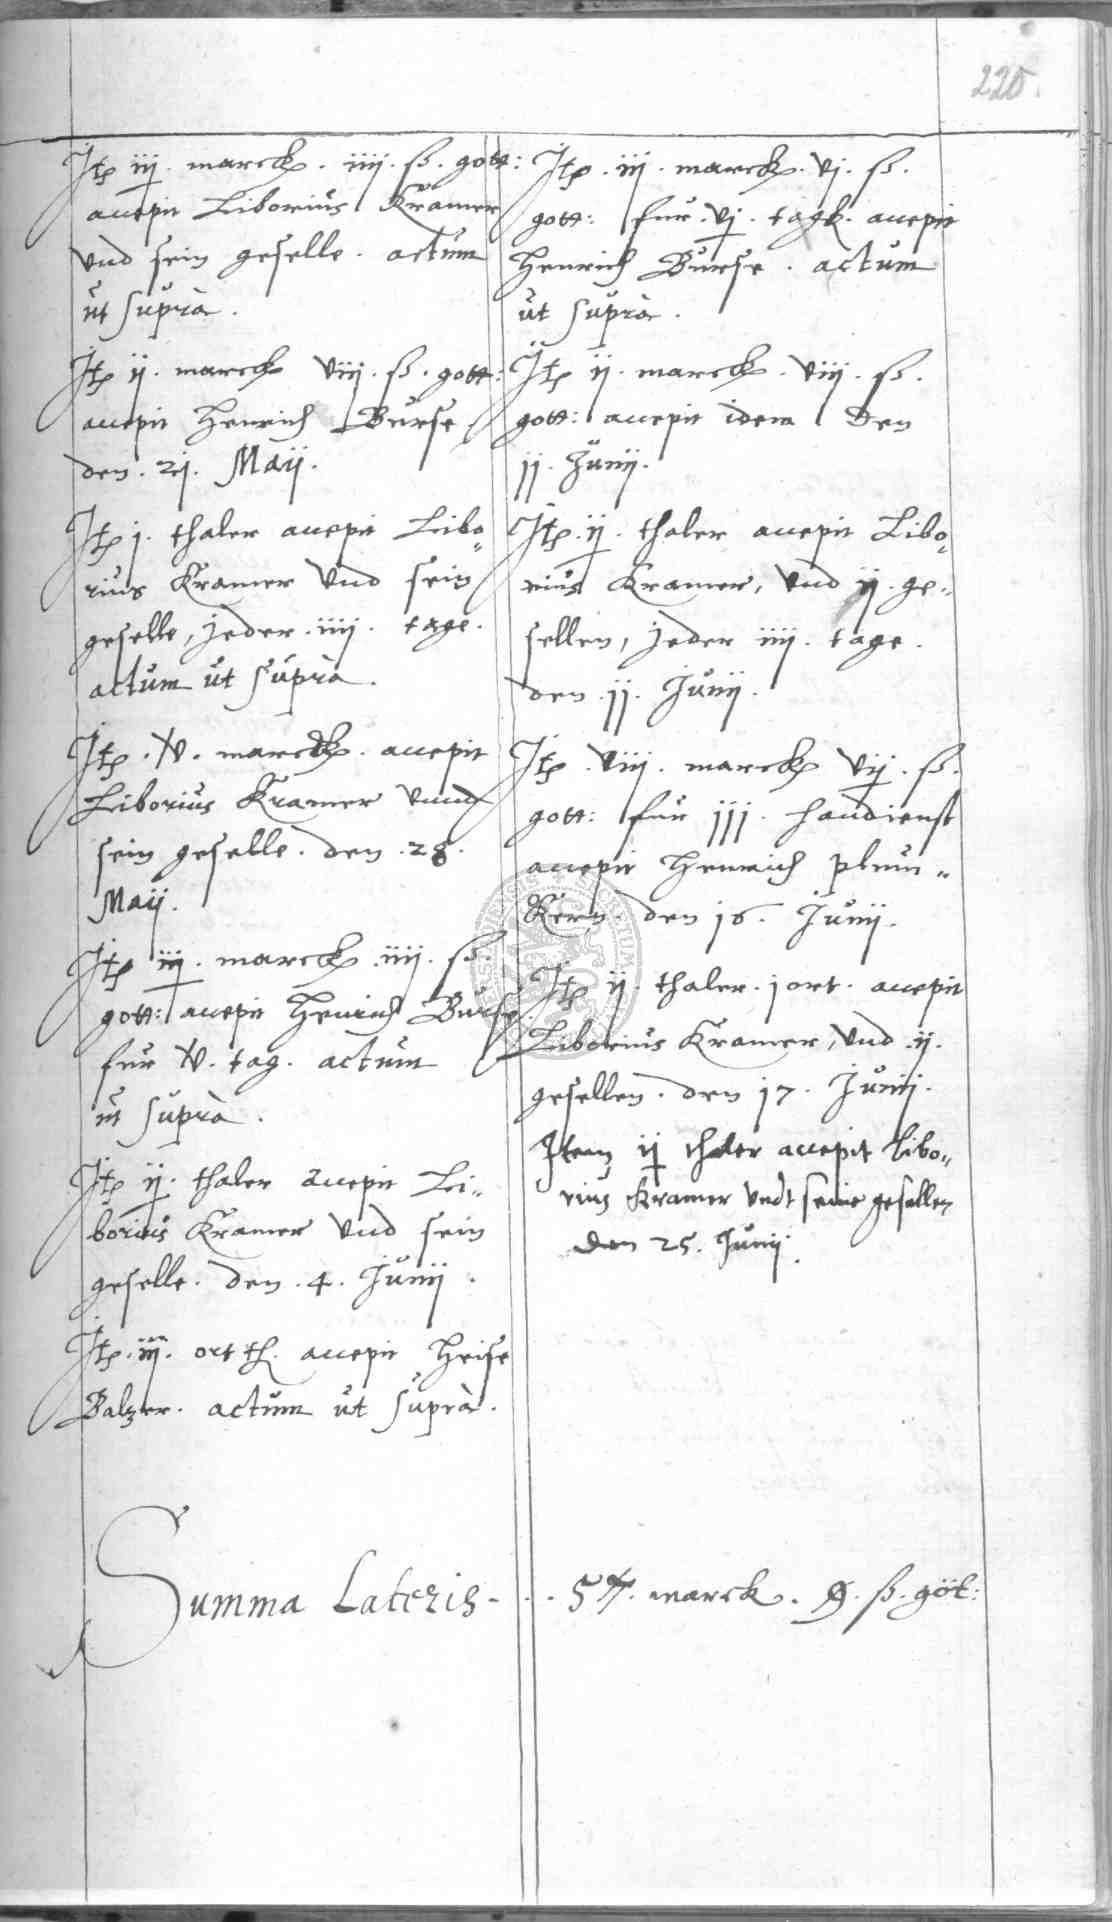 220.
Itp iij. marck. iiij. ß. gott:
accepit Liborius Kramer
und sein geselle. actum
ut suprà.
Itp ij. marck viij. ß. gott:
accepit Henrich Burse
den. 21. Maij.
Itp j. thaler accepit Libo-
rius Kramer und sein
geselle, jeder. iiij. tage.
actum ut suprà.
Itp. v. marck. accepit
Liborius Kramer unnd
sein geselle. den. 28.
Maij.
Itp iij. marck. iiij. ß.
gott: accepit Henrich Burse
fur v. tag. actum
ut suprà.
Itp ij. thaler accepit Li-
borius Kramer und sein
geselle. den. 4. Junij.
Itp. iij. ort th. accepit Heise
Balzer. actum ut suprà.
Itp. iij. marck. vj. ß.
gott: fur. vj. tagk. accepit
Henrich Burse. actum
ut suprà.
Itp ij. marck. viij. ß.
gott: accepit idem den
11. Junij.
Itp. ij. thaler accepit Libo-
rius Kramer, und ij. ge-
sellen, jeder iiij. tage.
den. 11. Junij.
Itp. viij. marck vij. ß.
gott: fur iij. handienst
accepit Henrich Plum-
Kern. den 16. Junij.
Itp ij. thaler. j ort. accepit
Liborius Kramer, und ij.
gesellen. den 17. Junij.
Item ij thaler accepit Libo-
rius Kramer undt seine gesellen
den 25. Junij.
Summa Lateris - . . marck. 9. ß. göt: